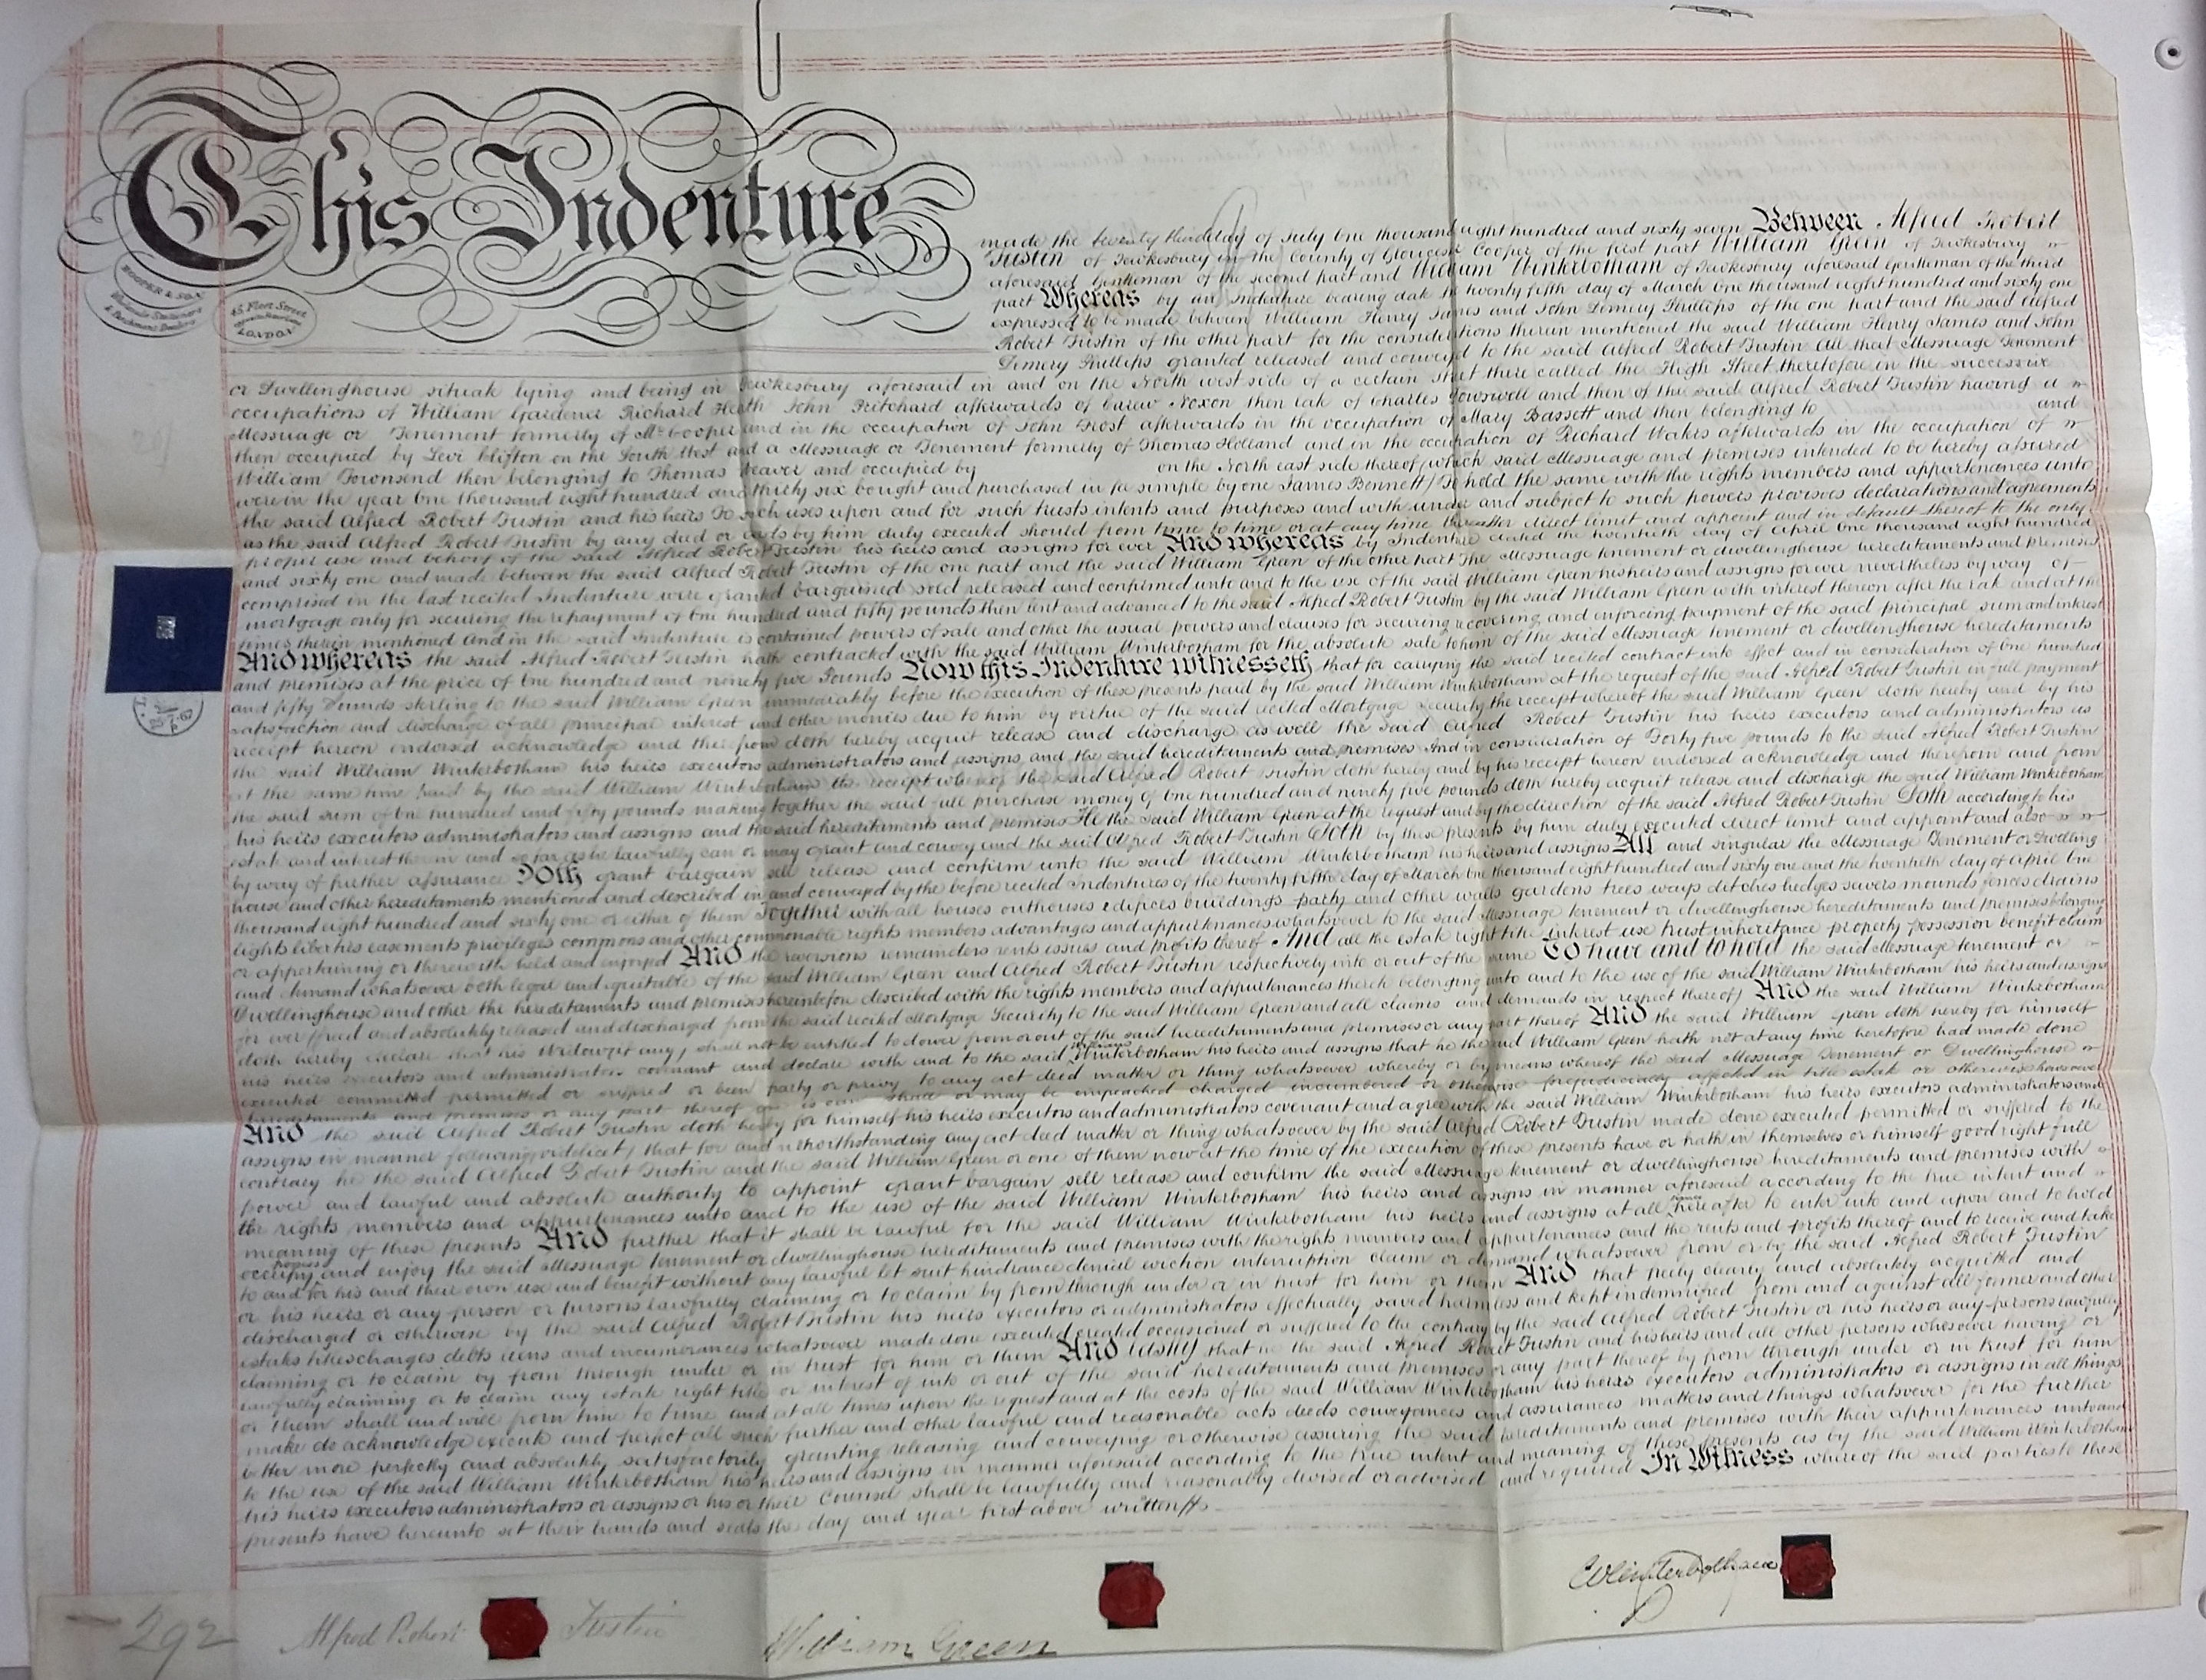 This Indenture
HOOPER & SON
Wholesale Stationers
& Parchment Dealers
45 Fleet Street
LONDON
made the twenty third day of July One thousand eight hundred and sixty seven Between Alfred Robert
Tustin of Tewkesbury in the County of Gloucester Cooper of the first part William Green of Tewkesbury
aforesaid Gentleman of the second part and William Winterbotham of Tewkesbury aforesaid Gentleman of the third
part Whereas by an Indenture bearing date the twenty fifth day of March One thousand eight hundred and sixty one
expressed to be made between William Henry James and John Demery Phillips of the one part and the said Alfred
Robert Tustin of the other part for the considerations therein mentioned the said William Henry James and John
Demery Phillips granted released and conveyed to the said Alfred Robert Tustin All that Messuage Tenement
or Dwellinghouse situate lying and being in Tewkesbury aforesaid in and on the North west side of a certain street there called the High Street theretofore in the successive
occupations of William Gardener Richard Heath John Pritchard afterwards of Carew Noxon then late of Charles and then of the said Alfred Robert Tustin having a
Messuage or Tenement formerly of Mr Cooper and in the occupation of John Frost afterwards in the occupation of Mary Bassett and then belonging to and
then occupied by Levi Clifton on the South West and a Messuage or Tenement formerly of Thomas Holland and in the occupation of Richard Wakes afterwards in the occupation of
William Townsend then belonging to Thomas Weaver and occupied by on the North east side thereof (which said Messuage and premises intended to be hereby assured
were in the year One thousand eight hundred and thirty six bought and purchased in fee simple by one James Bennett) To hold the same with the rights members and appurtenances unto
the said Alfred Robert Tustin and his heirs To such uses upon and for such trusts intents and purposes and with under and subject to such powers provisoes declarations and agreements
as the said Alfred Robert Tustin by any deed or deeds by him duly executed should from time to time or at any time thereafter direct limit and appoint and in default thereof to the only
proper use and behoof of the said Alfred Robert Tustin his heirs and assigns for ever And whereas by Indenture dated the twentieth day of April One thousand eight hundred
and sixty one and made between the said Alfred Robert Tustin of the one part and the said William Green of the other part The Messuage tenement or dwellinghouse hereditaments and premises
comprised in the last recited Indenture were granted bargained sold released and confirmed unto and to the use of the said William Green his heirs and assigns for ever nevertheless by way of
mortgage only for securing the repayment of One hundred and fifty pounds then lent and advanced to the said Alfred Robert Tustin by the said William Green with interest thereon after the rate and at the
times therein mentioned And in the said Indenture is contained powers of sale and other the usual powers and clauses for securing recovering and enforcing payment of the said principal sum and interest
And whereas the said Alfred Robert Tustin hath contracted with the said William Winterbotham for the absolute sale to him of the said Messuage tenement or dwellinghouse hereditaments
and premises at the price of One hundred and ninety five Pounds Now this Indenture witnesseth that for carrying the said recited contract into effect and in consideration of One hundred
and fifty Pounds sterling to the said William Green immediately before the execution of these presents paid by the said William Winterbotham at the request of the said Alfred Robert Tustin in full payment
satisfaction and discharge of all principal interest and other monies due to him by virtue of the said recited Mortgage Security the receipt whereof the said William Green doth hereby and by his
receipt hereon endorsed acknowledge and therefrom doth hereby acquit release and discharge as well the said Alfred Robert Tustin his heirs executors and administrators as
the said William Winterbotham his heirs executors administrators and assigns and the said hereditaments and premises And in consideration of Forty five pounds to the said Alfred Robert Tustin
at the same time paid by the said William Winterbotham the receipt whereof the said Alfred Robert Tustin doth hereby and by his receipt hereon endorsed acknowledge and therefrom and from
the said sum of One hundred and fifty pounds making together the said full purchase money of One hundred and ninety five pounds doth hereby acquit release and discharge the said William Winterbotham
his heirs executors administrators and assigns and the said hereditaments and premises He the said William Green at the request and by the direction of the said Alfred Robert Tustin Doth according to his
estate and interest therein and so far as he lawfully can or may grant and convey and the said Alfred Robert Tustin Doth by these presents by him duly executed direct limit and appoint and also
by way of further assurance Doth grant bargain sell release and confirm unto the said William Winterbotham his heirs and assigns All and singular the Messuage Tenement or Dwelling
house and other hereditaments mentioned and described in and conveyed by the before recited Indentures of the twenty fifth day of March One thousand eight hundred and sixty one and the twentieth day of April One
thousand eight hundred and sixty one or either of them Together with all houses outhouses edifices buildings party and other walls gardens trees ways ditches hedges sewers mounds fences drains
lights liberties easements privileges commons and other commonable rights members advantages and appurtenances whatsoever to the said Messuage tenement or dwellinghouse hereditaments and premises belonging
or appertaining or therewith held and enjoyed And the reversions remainders rents issues and profits thereof And all the estate right title interest use trust inheritance property possession benefit claim
and demand whatsoever both legal and equitable of the said William Green and Alfred Robert Tustin respectively into or out of the same To have and to hold the said Messuage tenement or
Dwellinghouse and other the hereditaments and premises hereinbefore described with the rights members and appurtenances thereto belonging unto and to the use of the said William Winterbotham his heirs and assigns
for ever freed and absolutely released and discharged from the said recited Mortgage Security to the said William Green and all claims and demands in respect thereof And the said William Winterbotham
doth hereby declare that his Widow (if any) shall not be entitled to dower from or out of the said hereditaments and premises or any part thereof And the said William Green doth hereby for himself
his heirs executors and administrators covenant and declare with and to the said William Winterbotham his heirs and assigns that he the said William Green hath not at any time heretofore had made done
executed committed permitted or suffered or been party or privy to any act deed matter or thing whatsoever whereby or by means whereof the said Messuage Tenement or Dwellinghouse
hereditaments and premises or any part thereof are is can shall or may be impeached charged incumbered or otherwise prejudicially affected in title estate or otherwise howsoever
And the said Alfred Robert Tustin doth hereby for himself his heirs executors and administrators covenant and agree with the said William Winterbotham his heirs executors administrators and
assigns in manner following (videlicet) that for and notwithstanding any act deed matter or thing whatsoever by the said Alfred Robert Tustin made done executed permitted or suffered to the
contrary he the said Alfred Robert Tustin and the said William Green or one of them now at the time of the execution of these presents have or hath in themselves or himself good right full
power and lawful and absolute authority to appoint grant bargain sell release and confirm the said Messuage tenement or dwellinghouse hereditaments and premises with
the rights members and appurtenances unto and to the use of the said William Winterbotham his heirs and assigns in manner aforesaid according to the true intent and
meaning of these presents And further that it shall be lawful for the said William Winterbotham his heirs and assigns at all times hereafter to enter into and upon and to hold
occupy possess and enjoy the said Messuage tenement or dwellinghouse hereditaments and premises with the rights members and appurtenances and the rents and profits thereof and to receive and take
to and for his and their own use and benefit without any lawful let suit hindrance denial eviction interruption claim or demand whatsoever from or by the said Alfred Robert Tustin
or his heirs or any person or persons lawfully claiming or to claim by from through under or in trust for him or them And that freely clearly and absolutely acquitted and
discharged or otherwise by the said Alfred Robert Tustin his heirs executors or administrators effectually saved harmless and kept indemnified from and against all former and other
estates titles charges debts liens and incumbrances whatsoever made done executed created occasioned or suffered to the contrary by the said Alfred Robert Tustin or his heirs or any persons lawfully
claiming or to claim by from through under or in trust for him or them And lastly that he the said Alfred Robert Tustin and his heirs and all other persons whosoever having or
lawfully claiming or to claim any estate right title or interest of into or out of the said hereditaments and premises or any part thereof by from through under or in trust for him
or them shall and will from time to time and at all times upon the request and at the costs of the said William Winterbotham his heirs executors administrators or assigns in all things
make do acknowledge execute and perfect all such further and other lawful and reasonable acts deeds conveyances and assurances matters and things whatsoever for the further
better more perfectly and absolutely satisfactorily granting releasing and conveying or otherwise assuring the said hereditaments and premises with their appurtenances unto and
to the use of the said William Winterbotham his heirs and assigns in manner aforesaid according to the true intent and meaning of these presents as by the said William Winterbotham
his heirs executors administrators or assigns or his or their Counsel shall be lawfully and reasonably devised or advised and required In Witness whereof the said parties to these
presents have hereunto set their hands and seals the day and year first above written
292
Alfred Robert Tustin
William Green
WWinterbotham